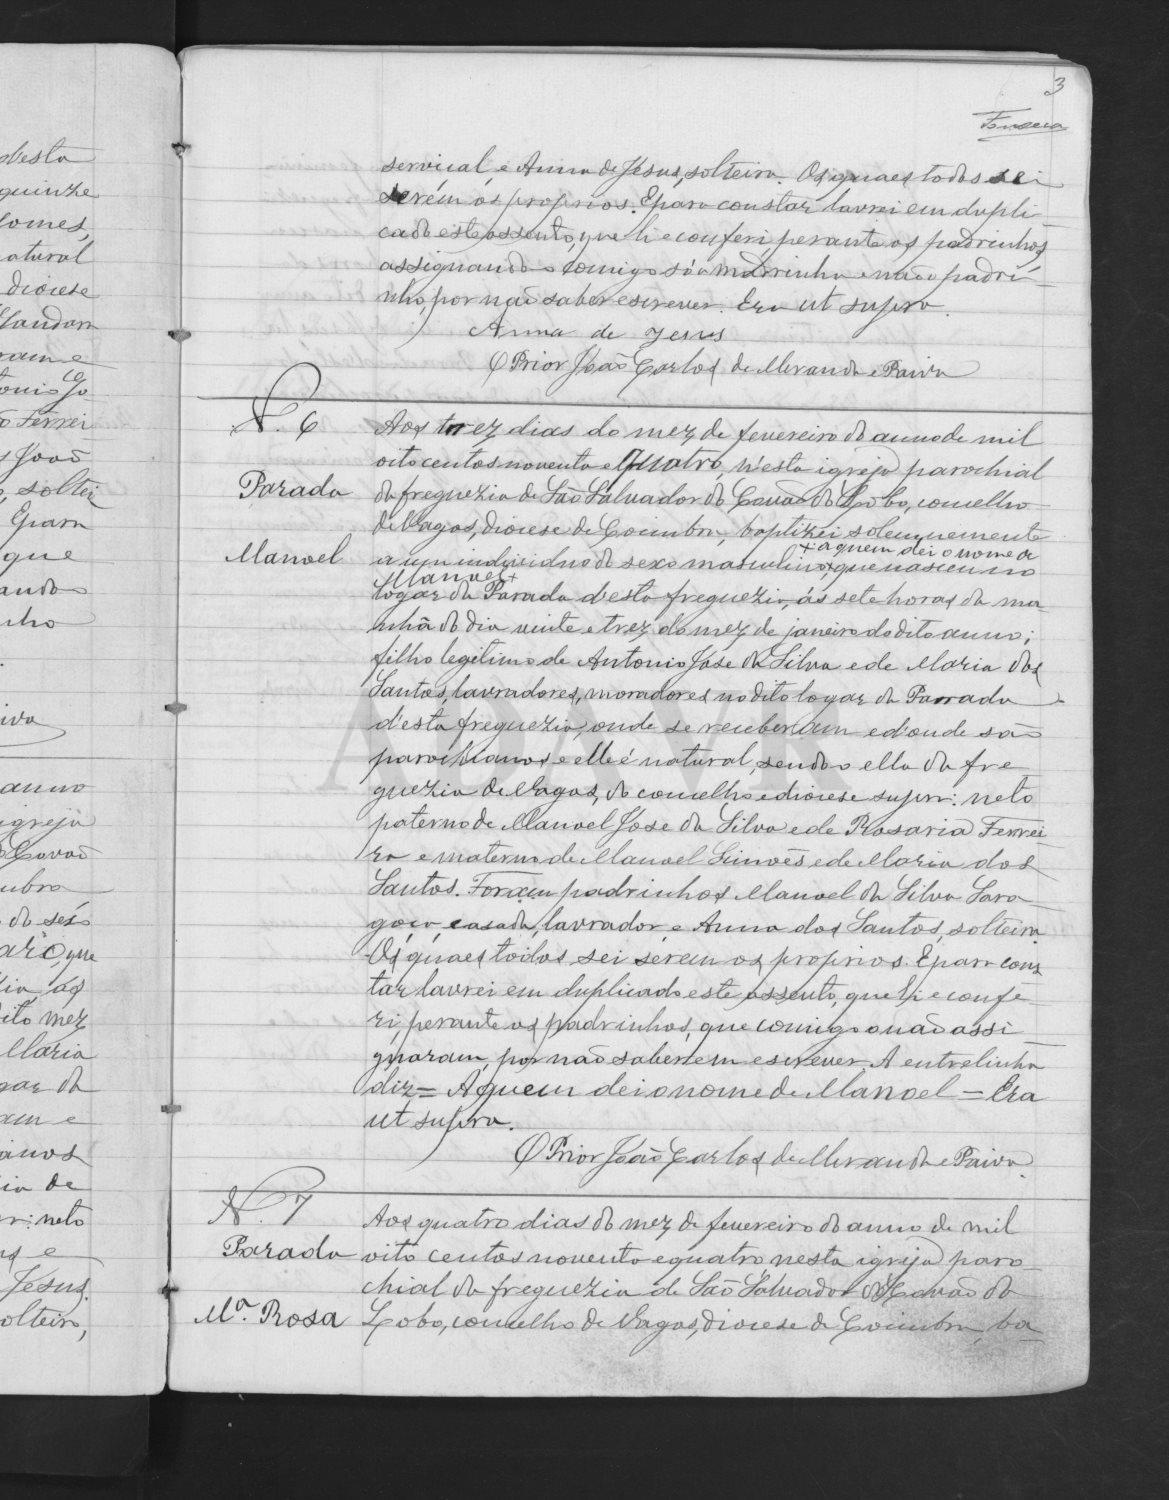 3
Fonseca
serviçal, e Anna de Jesus, solteira. Os quaes todos sei
serem os proprios. E para constar lavrei em dupli-
cado este assento, que li e conferi perante os padrinhos,
assignando comigo só a madrinha e não o padri-
nho, por não saber escrever. Era ut supra.
Anna de Jesus
O Prior João Carlos de Miranda e Paiva
N. 6
Parada
Manoel
Aos trez dias do mez de fevereiro do anno de mil
oito centos noventa e quatro, n'esta igreja parochial
da freguezia de São Salvador do Covão do Lobo, concelho
de Vagos, diocese de Coimbra, baptizei solemnemente
+ a quem dei o nome de
a um individuo do sexo masculino,+ que nasceu no
Manoel +
logar da Parada d'esta freguezia, ás sete horas da ma-
nhã do dia vinte e trez do mez de janeiro do dito anno;
filho legitimo de Antonio José da Silva e de Maria dos
Santos, lavradores, moradores no dito logar da Parada
d'esta freguezia, onde se receberam e d'onde são
parochianos e elle é natural, sendo ella da fre
guezia de Vagos, do concelho e diocese supra: neto
paterno de Manoel José da Silva e de Rosaria Ferrei-
ra e materno de Manoel Simões e de Maria dos
Santos. Foram padrinhos Manoel da Silva Sara-
goça, casado, lavrador, e Anna dos Santos, solteira.
Os quaes todos sei serem os proprios. E para cons
tar lavrei em duplicado este assento, que li e confe
ri, perante os padrinhos, que comigo o não assi
gnaram, por não saberem escrever. A entrelinha
diz = A quem dei o nome de Manoel = Era
ut supra.
O Prior João Carlos de Miranda e Paiva
N. 7
Parada
Mª. Rosa
Aos quatro dias do mez de fevereiro do anno de mil
oito centos noventa e quatro, nesta igreja paro-
chial da freguezia de São Salvador do Covão do
Lobo, concelho de Vagos, diocese de Coimbra, ba